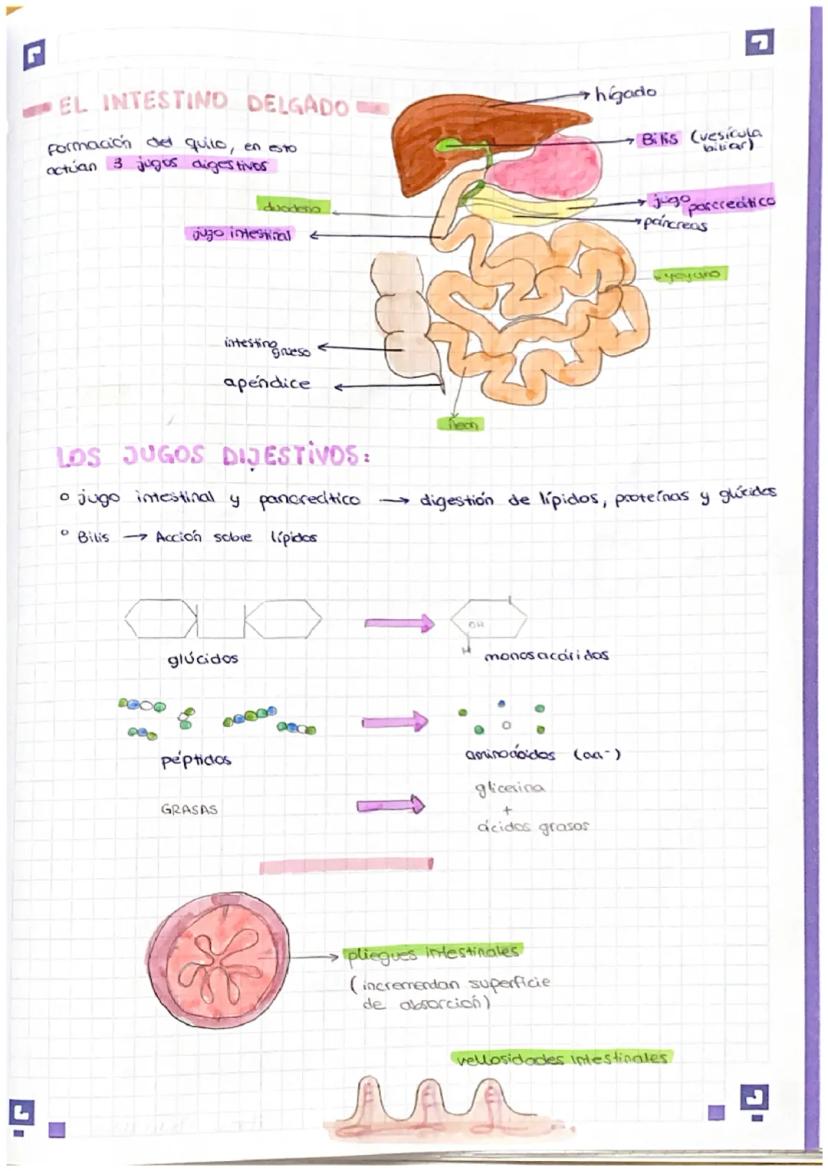 EL INTESTINO DELGADO
hígado
Formación del quilo, en esto
actúan 3 jugos digestivos
Bilis (vesícula
biliar)
duodeno
jugo pancreático
páncreas
jugo intestinal
yeyuno
intestino
grueso
apéndice
íleon
LOS JUGOS DIJESTIVOS:
jugo intestinal y pancreático → digestión de lípidos, proteínas y glúcidos
Bilis → Acción sobre lípidos
OH
H
glúcidos
monosacáridos
péptidos
aminoácidos (aa-)
GRASAS
glicerina
+
ácidos grasos
pliegues intestinales
(incrementan superficie
de absorción)
vellosidades intestinales